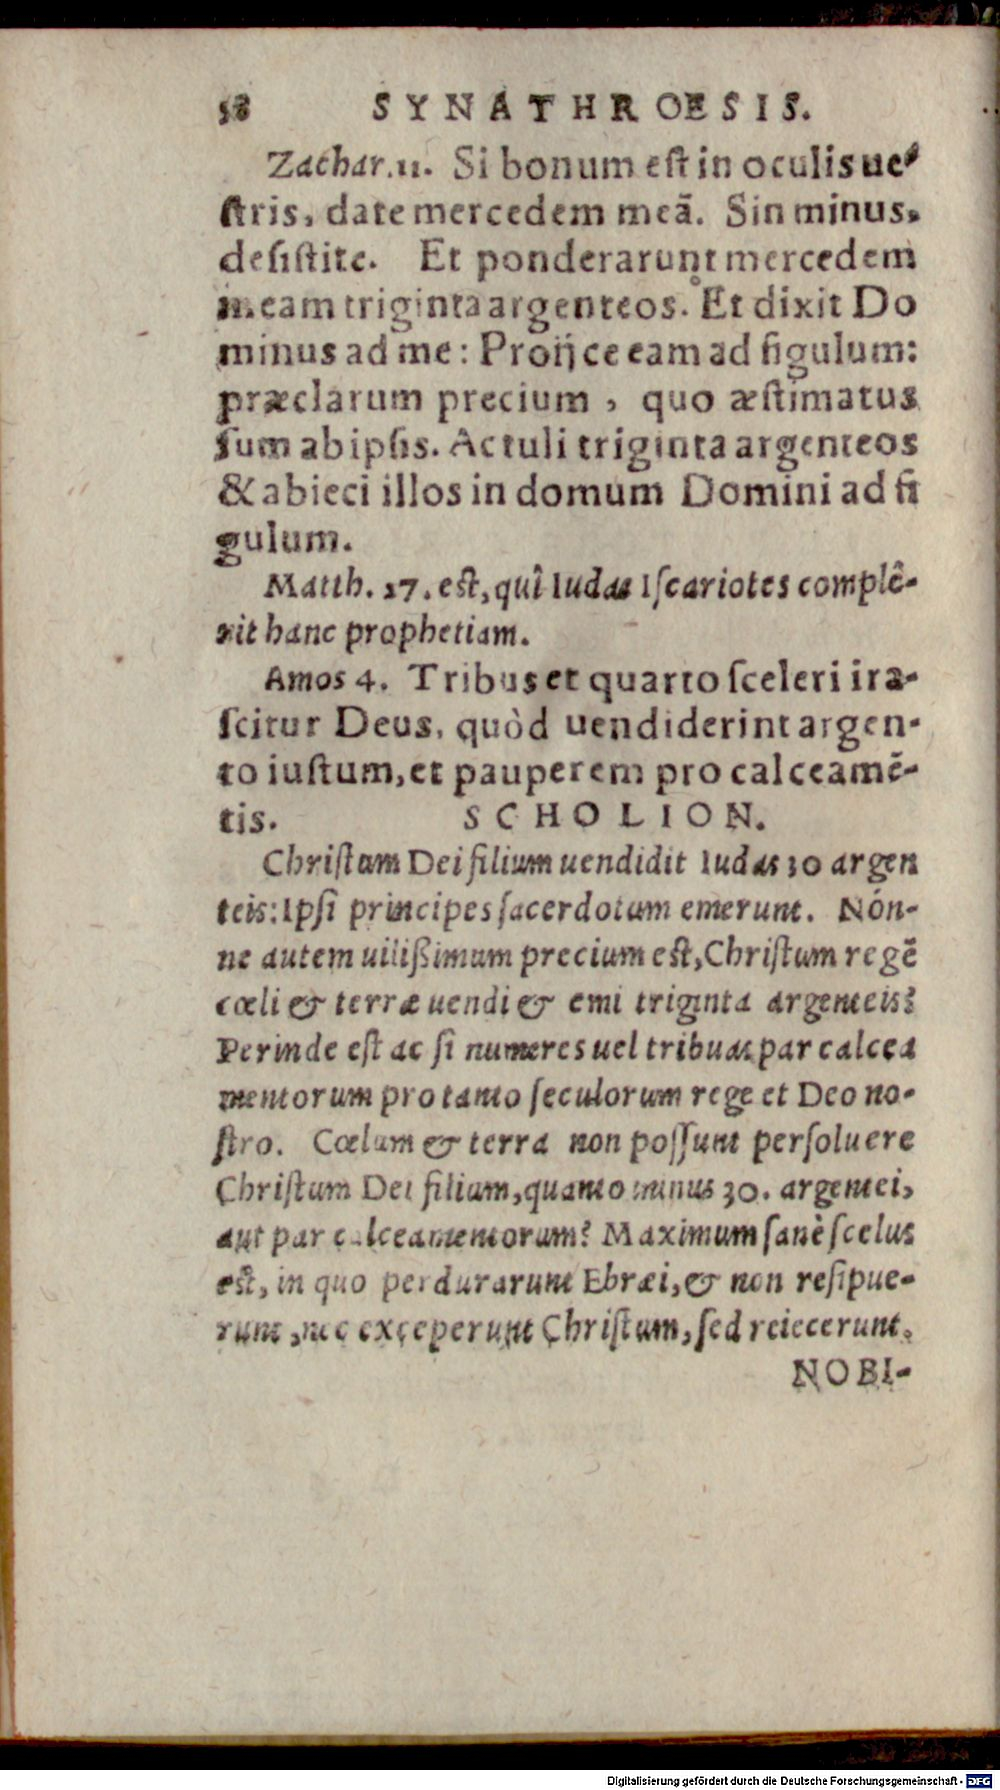 58 SYNATHROESIS.
Zachar. 11. Si bonum eſt in oculis ue-
ſtris, date mercedem meã. Sin minus,
deſiſtite. Et ponderarunt mercedem
meam triginta argenteos. Et dixit Do
minus ad me: Proijce eam ad figulum:
præclarum precium, quo æſtimatus
ſum ab ipſis. Ac tuli triginta argenteos
& abieci illos in domum Domini ad fi
gulum.
Matth. 27. eſt, quî Iudas Iſcariotes complê-
rit hanc prophetiam.
Amos 4. Tribus et quarto ſceleri ira-
ſcitur Deus, quòd uendiderint argen-
to iuſtum, et pauperem pro calceamẽ-
tis. SCHOLION.
Chriſtum Dei filium uendidit Iudas 30 argen
teis: Ipſi principes ſacerdotum emerunt. Nón-
ne autem uilißimum precium eſt, Chriſtum regẽ
cœli & terræ uendi & emi triginta argenteis?
Perinde eſt ac ſi numeres uel tribuas par calcea
mentorum pro tanto ſeculorum rege et Deo no-
ſtro. Cœlum & terra non poſſunt perſoluere
Chriſtum Dei filium, quanto minus 30. argentei,
aut par calceamentorum? Maximum ſanè ſcelus
eſt, in quo perdurarunt Ebræi, & non reſipue-
runt, nec exceperunt Chriſtum, ſed reiecerunt.
NOBI-
Digitalisierung gefördert durch die Deutsche Forschungsgemeinschaft - DFG